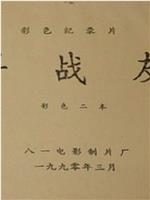 彩色纪录片
战
彩色二本
八一电影制片厂
一九九〇年三月